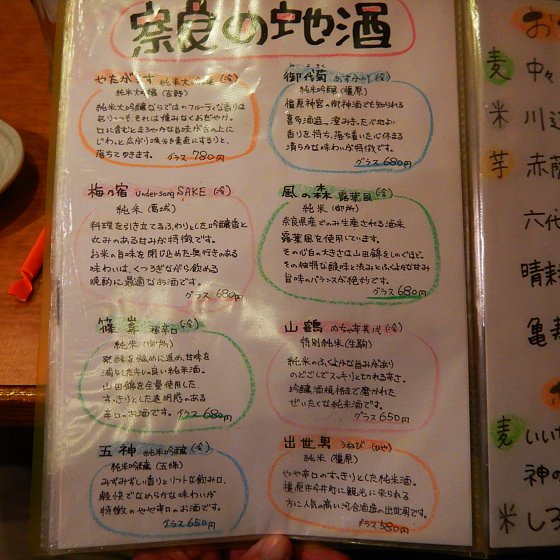 奈良の地酒
やたがらす 純米大吟醸 (冷)
純米大吟醸 (吉野)
純米大吟醸ならではのフルーティな香りは
ありつつも、それは嫌みなくおだやか。
口に含むとまろやかな旨味が舌の上に
じわっと広がり喉を素直にするりと、
落ちてゆきます。 グラス 780円
御代菊 (冷)
純米吟醸 (橿原)
橿原神宮の御神酒でも知られる
喜多酒造。澄みきった心地よい
香りを持ち、落ち着いた心休まる
清らかな味わいが特徴です。
グラス 680円
梅乃宿 under song SAKE (冷)
純米 (葛城)
料理を引き立てるふわりとした吟醸香と
丸みのある甘みが特徴です。
お米の旨味を閉じ込めた奥行きのある
味わいは、くつろぎながら飲める
晩酌に最適なお酒です。
グラス 680円
風の森 露葉風 (冷)
純米 (御所)
奈良県産でのみ生産される酒米
露葉風を使用しています。
その心白の大きさは山田錦をしのぐほど。
その独特な酸味と渋みとふくよかな甘み
旨味のバランスが絶妙です。
グラス 680円
篠峯 超辛口 (冷)
純米 (御所)
発酵を強めに進め、甘味を
減らしたキレの良い純米酒。
山田錦を全量使用した
すっきりとした透明感のある
辛口のお酒です。グラス 680円
山鶴 (冷)
特別純米 (生駒)
純米のふくよかな旨みがあり
のどごしでスーッキリと切れる辛さ。
吟醸酒規格まで磨かれた
ぜいたくな純米酒です。
グラス 650円
五神 純米吟醸 (冷)
純米吟醸 (五條)
みずみずしい香りとソフトな飲み口、
軽快でなめらかな味わいが
特徴のやや辛口のお酒です。
グラス 650円
出世男 うねび (冷)
純米 (橿原)
やや辛口のすっきりとした純米酒。
橿原市今井町に観光に来られる
方に人気の高い河合酒造の出世男です。
グラス 580円
お
麦 中々
米 川辺
芋 赤
六代
晴耕
亀
麦 いい
神の
米 しろ